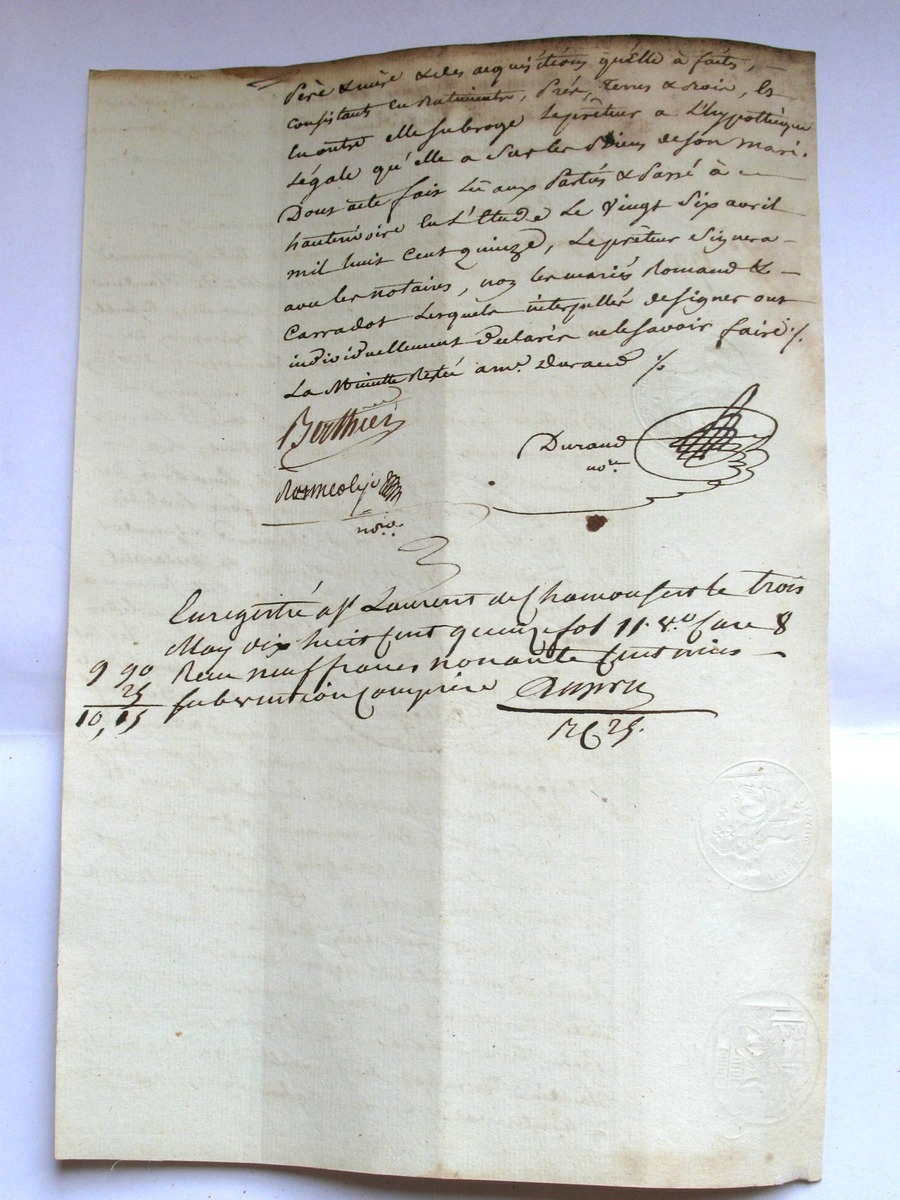 Père & mère & des acquisitions qu'elle à faits,
consistants en Batiments, Prés, Terres & Bois, &
En outre elle subroge Le prêteur a L'hypothèque
Légale qu'elle a Sur les Biens de son mari.
Dont acte fait Lû aux Parties & Passé à
hauterivoire En L'Etude Le Vingt Six avril
mil huit Cent quinze, Le prêteur Signera
avec les notaires, non les mariés Romand &
Carradot Lesquels interpellés de signer ont
individuellement déclarés ne le savoir faire %.
La Minutte Restée a mᵉ. Durand %
Berthier
Durand
noʳᵉ
noʳᵉ.
Enregistré a Sᵗ Laurent de Chamousset le trois
May dix huit Cent quinze fol 11. vº Case 8
9 90 Reçu neuf francs nonante Centimes
25
10,15 subvention Comprise